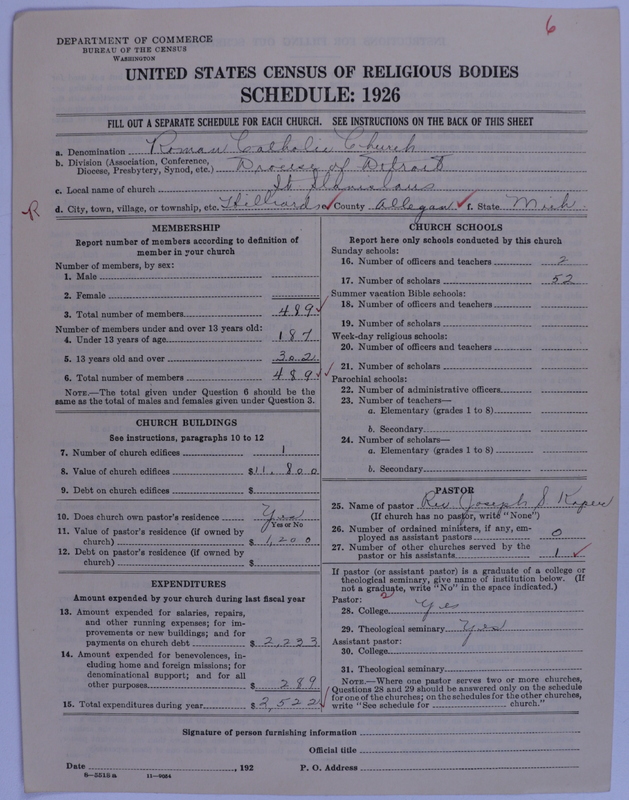 6
DEPARTMENT OF COMMERCE
BUREAU OF THE CENSUS
WASHINGTON
UNITED STATES CENSUS OF RELIGIOUS BODIES
SCHEDULE: 1926
FILL OUT A SEPARATE SCHEDULE FOR EACH CHURCH. SEE INSTRUCTIONS ON THE BACK OF THIS SHEET
a. Denomination Roman Catholic Church
b. Division (Association, Conference,
Diocese, Presbytery, Synod, etc.) Diocese of Detroit
c. Local name of church St Stanislaus
R d. City, town, village, or township, etc. Hilliards e. County Allegan f. State Mich.
MEMBERSHIP
Report number of members according to definition of
member in your church
Number of members, by sex:
1. Male
2. Female
3. Total number of members 489
Number of members under and over 13 years old:
4. Under 13 years of age 187
5. 13 years old and over 302
6. Total number of members 489
NOTE.—The total given under Question 6 should be
same as the total of males and females given under Question 3.
CHURCH BUILDINGS
See instructions, paragraphs 10 to 12
7. Number of church edifices 1
8. Value of church edifices $11,800
9. Debt on church edifices $
10. Does church own pastor's residence Yes
Yes or No
11. Value of pastor's residence (if owned by
church) $1,200
12. Debt on pastor's residence (if owned by
church) $
EXPENDITURES
Amount expended by your church during last fiscal year
13. Amount expended for salaries, repairs,
and other running expenses; for im-
provements or new buildings; and for
payments on church debt $2,233
14. Amount expended for benevolences, in-
cluding home and foreign missions; for
denominational support; and for all
other purposes $289
15. Total expenditures during year $2,522
CHURCH SCHOOLS
Report here only schools conducted by this church
Sunday schools:
16. Number of officers and teachers 2
17. Number of scholars 52
Summer vacation Bible schools:
18. Number of officers and teachers
19. Number of scholars
Week-day religious schools:
20. Number of officers and teachers
21. Number of scholars
Parochial schools:
22. Number of administrative officers
23. Number of teachers—
a. Elementary (grades 1 to 8)
b. Secondary
24. Number of scholars—
a. Elementary (grades 1 to 8)
b. Secondary
PASTOR
25. Name of pastor Rev Joseph S
(If church has no pastor, write "None")
26. Number of ordained ministers, if any, em-
ployed as assistant pastors 0
27. Number of other churches served by the
pastor or his assistants 1
If pastor (or assistant pastor) is a graduate of a college or
theological seminary, give name of institution below. (If
not a graduate, write "No" in the space indicated.)
Pastor: 2
28. College Yes
29. Theological seminary Yes
Assistant pastor:
30. College
31. Theological seminary
NOTE.—Where one pastor serves two or more churches,
Questions 28 and 29 should be answered only on the schedule
for one of the churches; on the schedules for the other churches,
write "See schedule for church."
Signature of person furnishing information
Official title
Date , 192 P. O. Address
8-5518a 11-9054